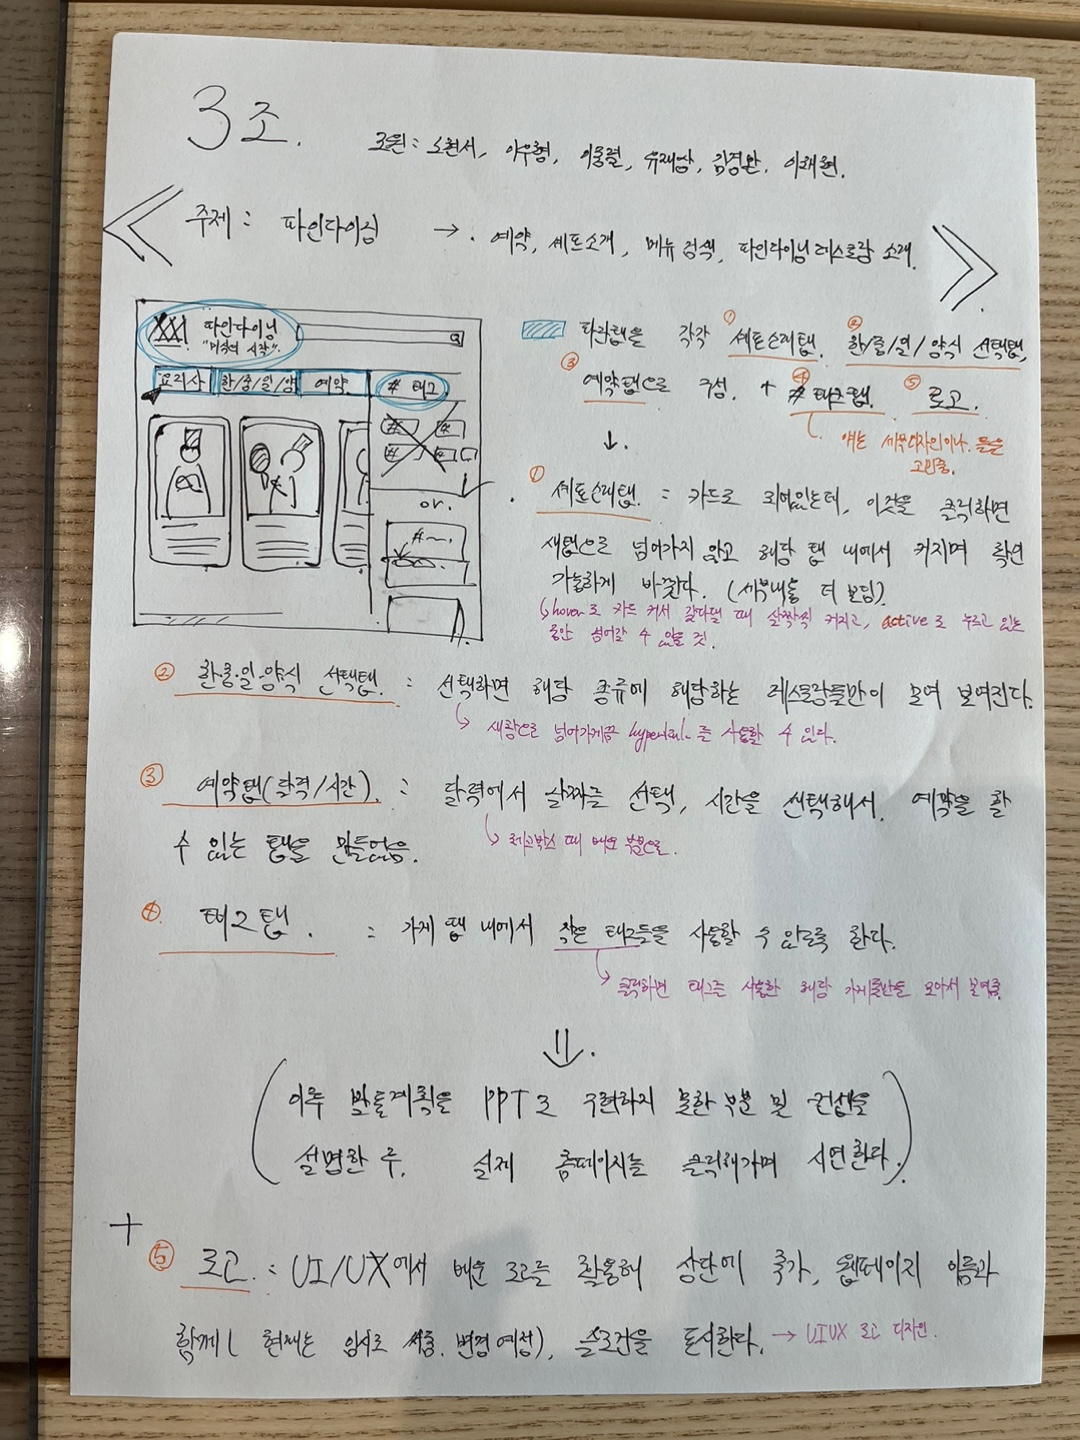 3조.
조원 : 노현서, 이우형, 이웅렬, 유재상, 김경완, 이채현.
주제 : 파인다이닝 → . 예약, 셰프소개, 메뉴 검색, 파인다이닝 레스토랑 소개.
파인다이닝
"미식의 시작".
요리사 한/중/일/양 예약 # 태그
# # # #
or.
#~.
파란탭을 각각 ① 셰프소개탭. ② 한/중/일/양식 선택탭,
③ 예약탭으로 구성. + ④ # 태그탭. ⑤ 로고.
얘는 세부디자인이나 등은
고민중.
↓.
① 셰프소개탭. = 카드로 되어있는데, 이것을 클릭하면
새탭으로 넘어가지 않고 해당 탭 내에서 커지며 확인
가능하게 바뀐다. (세부내용 더 보임)
hover로 카드 커서 갖다댈 때 살짝씩 커지고, active로 누르고 있는
동안 넘어갈 수 있을 것.
② 한·중·일·양식 선택탭. : 선택하면 해당 종류에 해당하는 레스토랑들만이 모여 보여진다.
새창으로 넘어가게끔 hyperlink를 사용할 수 있다.
③ 예약탭(달력/시간). : 달력에서 날짜를 선택, 시간을 선택해서. 예약을 할
수 있는 탭을 만들었음.
체크박스 때 배운 부분으로.
④ 태그탭. = 가게 탭 내에서 작은 태그들을 사용할 수 있도록 한다.
클릭하면 태그를 사용한 해당 가게들만을 모아서 보여줌.
⇓.
( 이후 발표계획을 PPT로 구현하지 못한 부분 및 컨셉을
설명한 후. 실제 홈페이지를 클릭해가며 시연한다. )
+
⑤ 로고. : UI/UX에서 배운 로고를 활용해 상단에 추가, 웹페이지 이름과
함께( 현재는 임시로 사용. 변경 예정), 을 표시한다. → UIUX 로고 디자인.